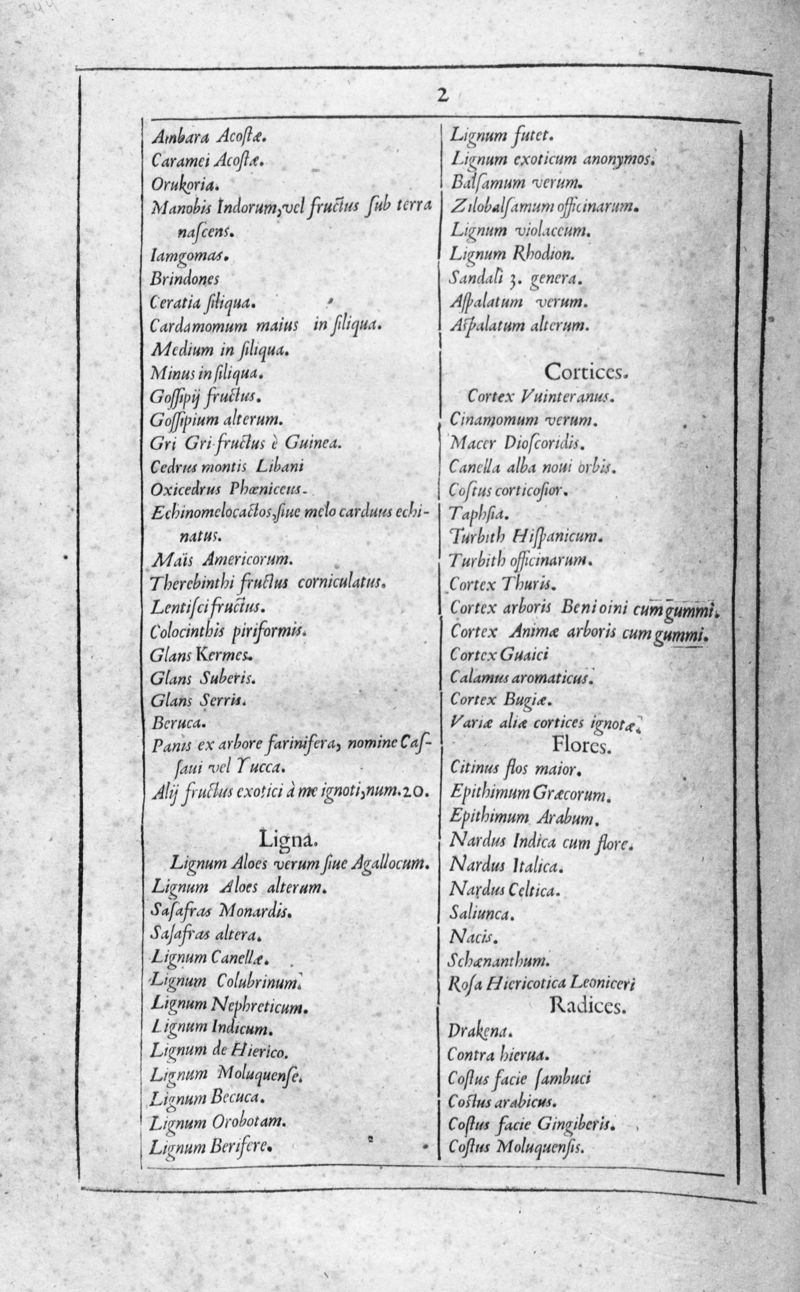 344
2
Ambara Acoſtæ.
Caramei Acoſtæ.
Orukoria.
Manobis Indorum, vel fructus ſub terra
naſcens.
Iamgomas.
Brindones
Ceratia ſiliqua.
Cardamomum maius in ſiliqua.
Medium in ſiliqua.
Minus in ſiliqua.
Goſſipij fructus.
Goſſipium alterum.
Gri Gri fructus è Guinea.
Cedrus montis Libani
Oxicedrus Phœniceus.
Echinomelocactos, ſiue melo carduus echi-
natus.
Maïs Americorum.
Therebinthi fructus corniculatus.
Lentiſci fructus.
Colocinthis piriformis.
Glans Kermes.
Glans Suberis.
Glans Serris.
Beruca.
Panis ex arbore farinifera, nomine Caſ-
ſaui vel Yucca.
Alij fructus exotici à me ignoti, num. 20.
Ligna.
Lignum Aloes verum ſiue Agallocum.
Lignum Aloes alterum.
Saſafras Monardis.
Saſafras altera.
Lignum Canellæ.
Lignum Colubrinum.
Lignum Nephreticum.
Lignum Indicum.
Lignum de Hierico.
Lignum Moluquenſe.
Lignum Becuca.
Lignum Orobotam.
Lignum Berifere.
Lignum futet.
Lignum exoticum anonymos.
Balſamum verum.
Zilobalſamum officinarum.
Lignum violaceum.
Lignum Rhodion.
Sandali 3. genera.
Aſpalatum verum.
Aſpalatum alterum.
Cortices.
Cortex Vuinteranus.
Cinamomum verum.
Macer Dioſcoridis.
Canella alba noui orbis.
Coſtus corticoſior.
Taphſia.
Turbith Hiſpanicum.
Turbith officinarum.
Cortex Thuris.
Cortex arboris Benioini cum gummi.
Cortex Animæ arboris cum gummi.
Cortex Guaici
Calamus aromaticus.
Cortex Bugiæ.
Variæ aliæ cortices ignotæ.
Flores.
Citinus flos maior.
Epithimum Græcorum.
Epithimum Arabum.
Nardus Indica cum flore.
Nardus Italica.
Nardus Celtica.
Saliunca.
Nacis.
Schœnanthum.
Roſa Hiericotica Leoniceri
Radices.
Drakena.
Contra hierua.
Coſtus facie ſambuci
Coſtus arabicus.
Coſtus facie Gingiberis.
Coſtus Moluquenſis.